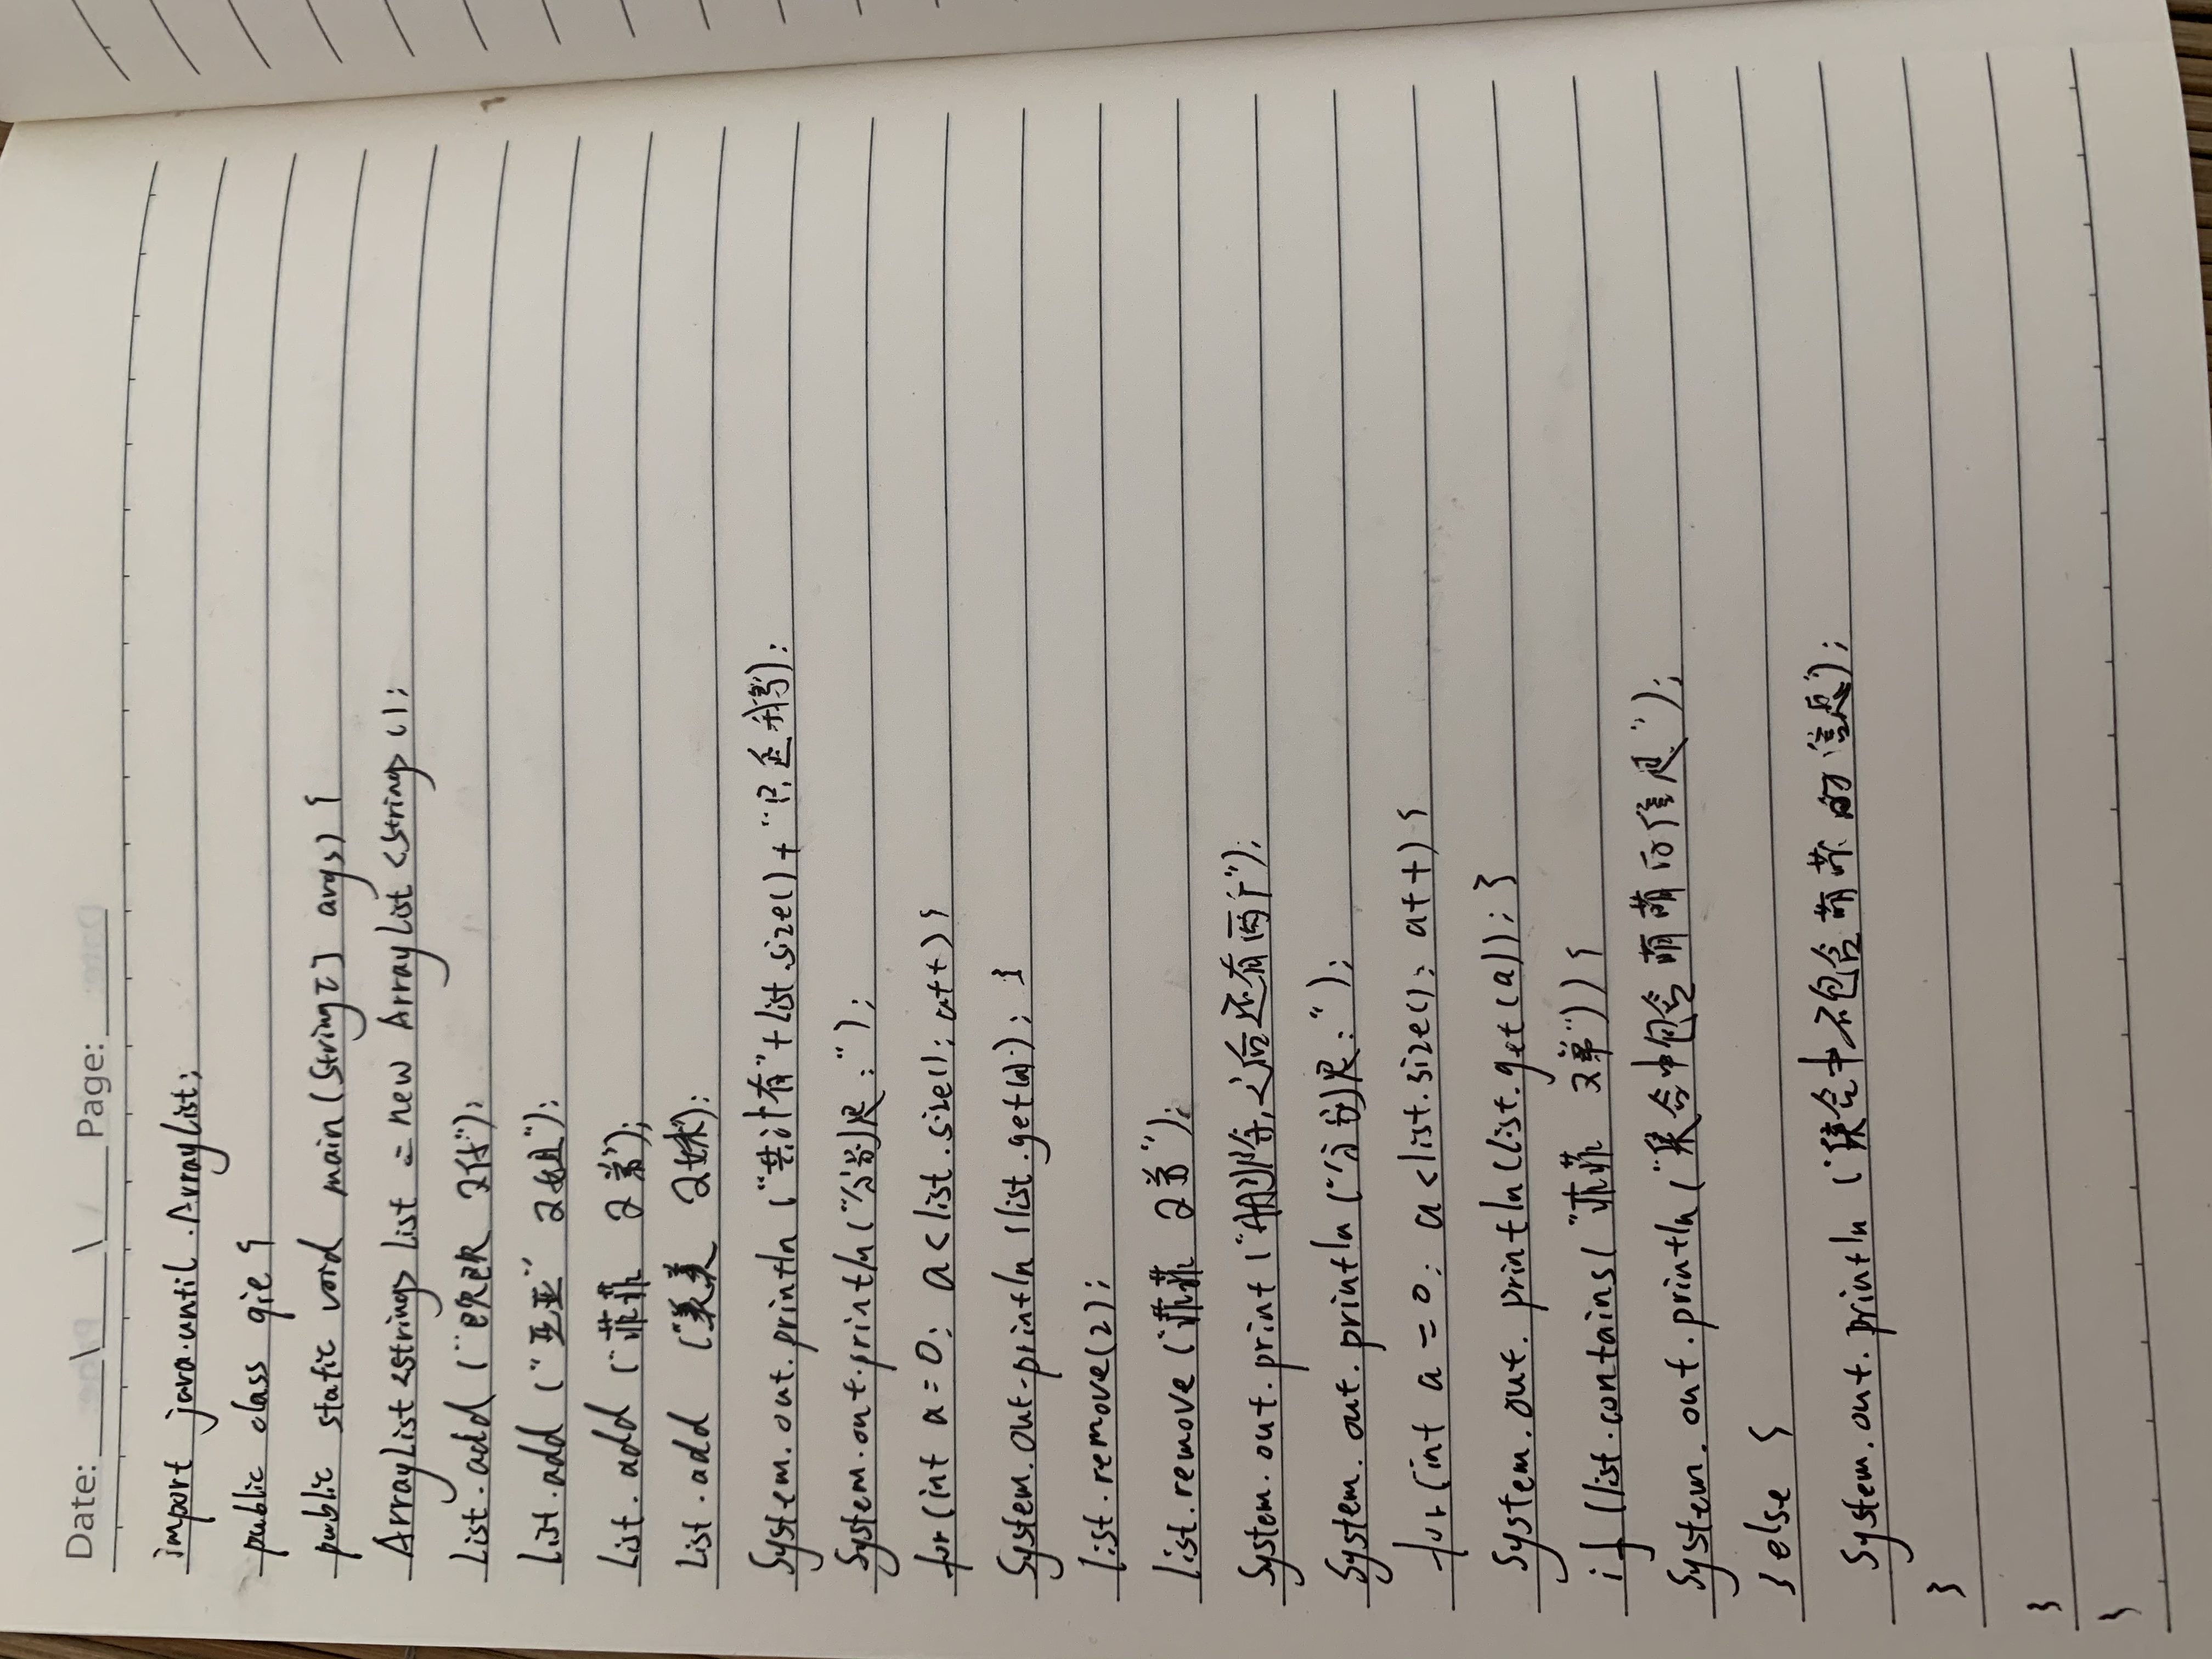 Date: Page:
import java.until.ArrayList;
public class qie {
public static void main(string[] args) {
ArrayList<string> list = new ArrayList<string>();
list.add("E欧 2代");
list.add("亚亚" 2姐");
list.add("菲菲 2弟");
list.add("美美 2妹");
System.out.println("共计有"+list.size()+"只企鹅");
System.out.println("分别是:");
for(int a=0; a<list.size(); a++){
System.out.println(list.get(a)); }
list.remove(2);
list.remove("菲菲 2弟");
System.out.print("删除之后还有两个");
System.out.println("分别是:");
for(int a=0; a<list.size(); a++){
System.out.println(list.get(a)); }
if(list.contains("菲菲 2弟")){
System.out.println("集合中包含萌萌的信息");
} else {
System.out.println("集合中不包含萌萌的信息);
}
}
}